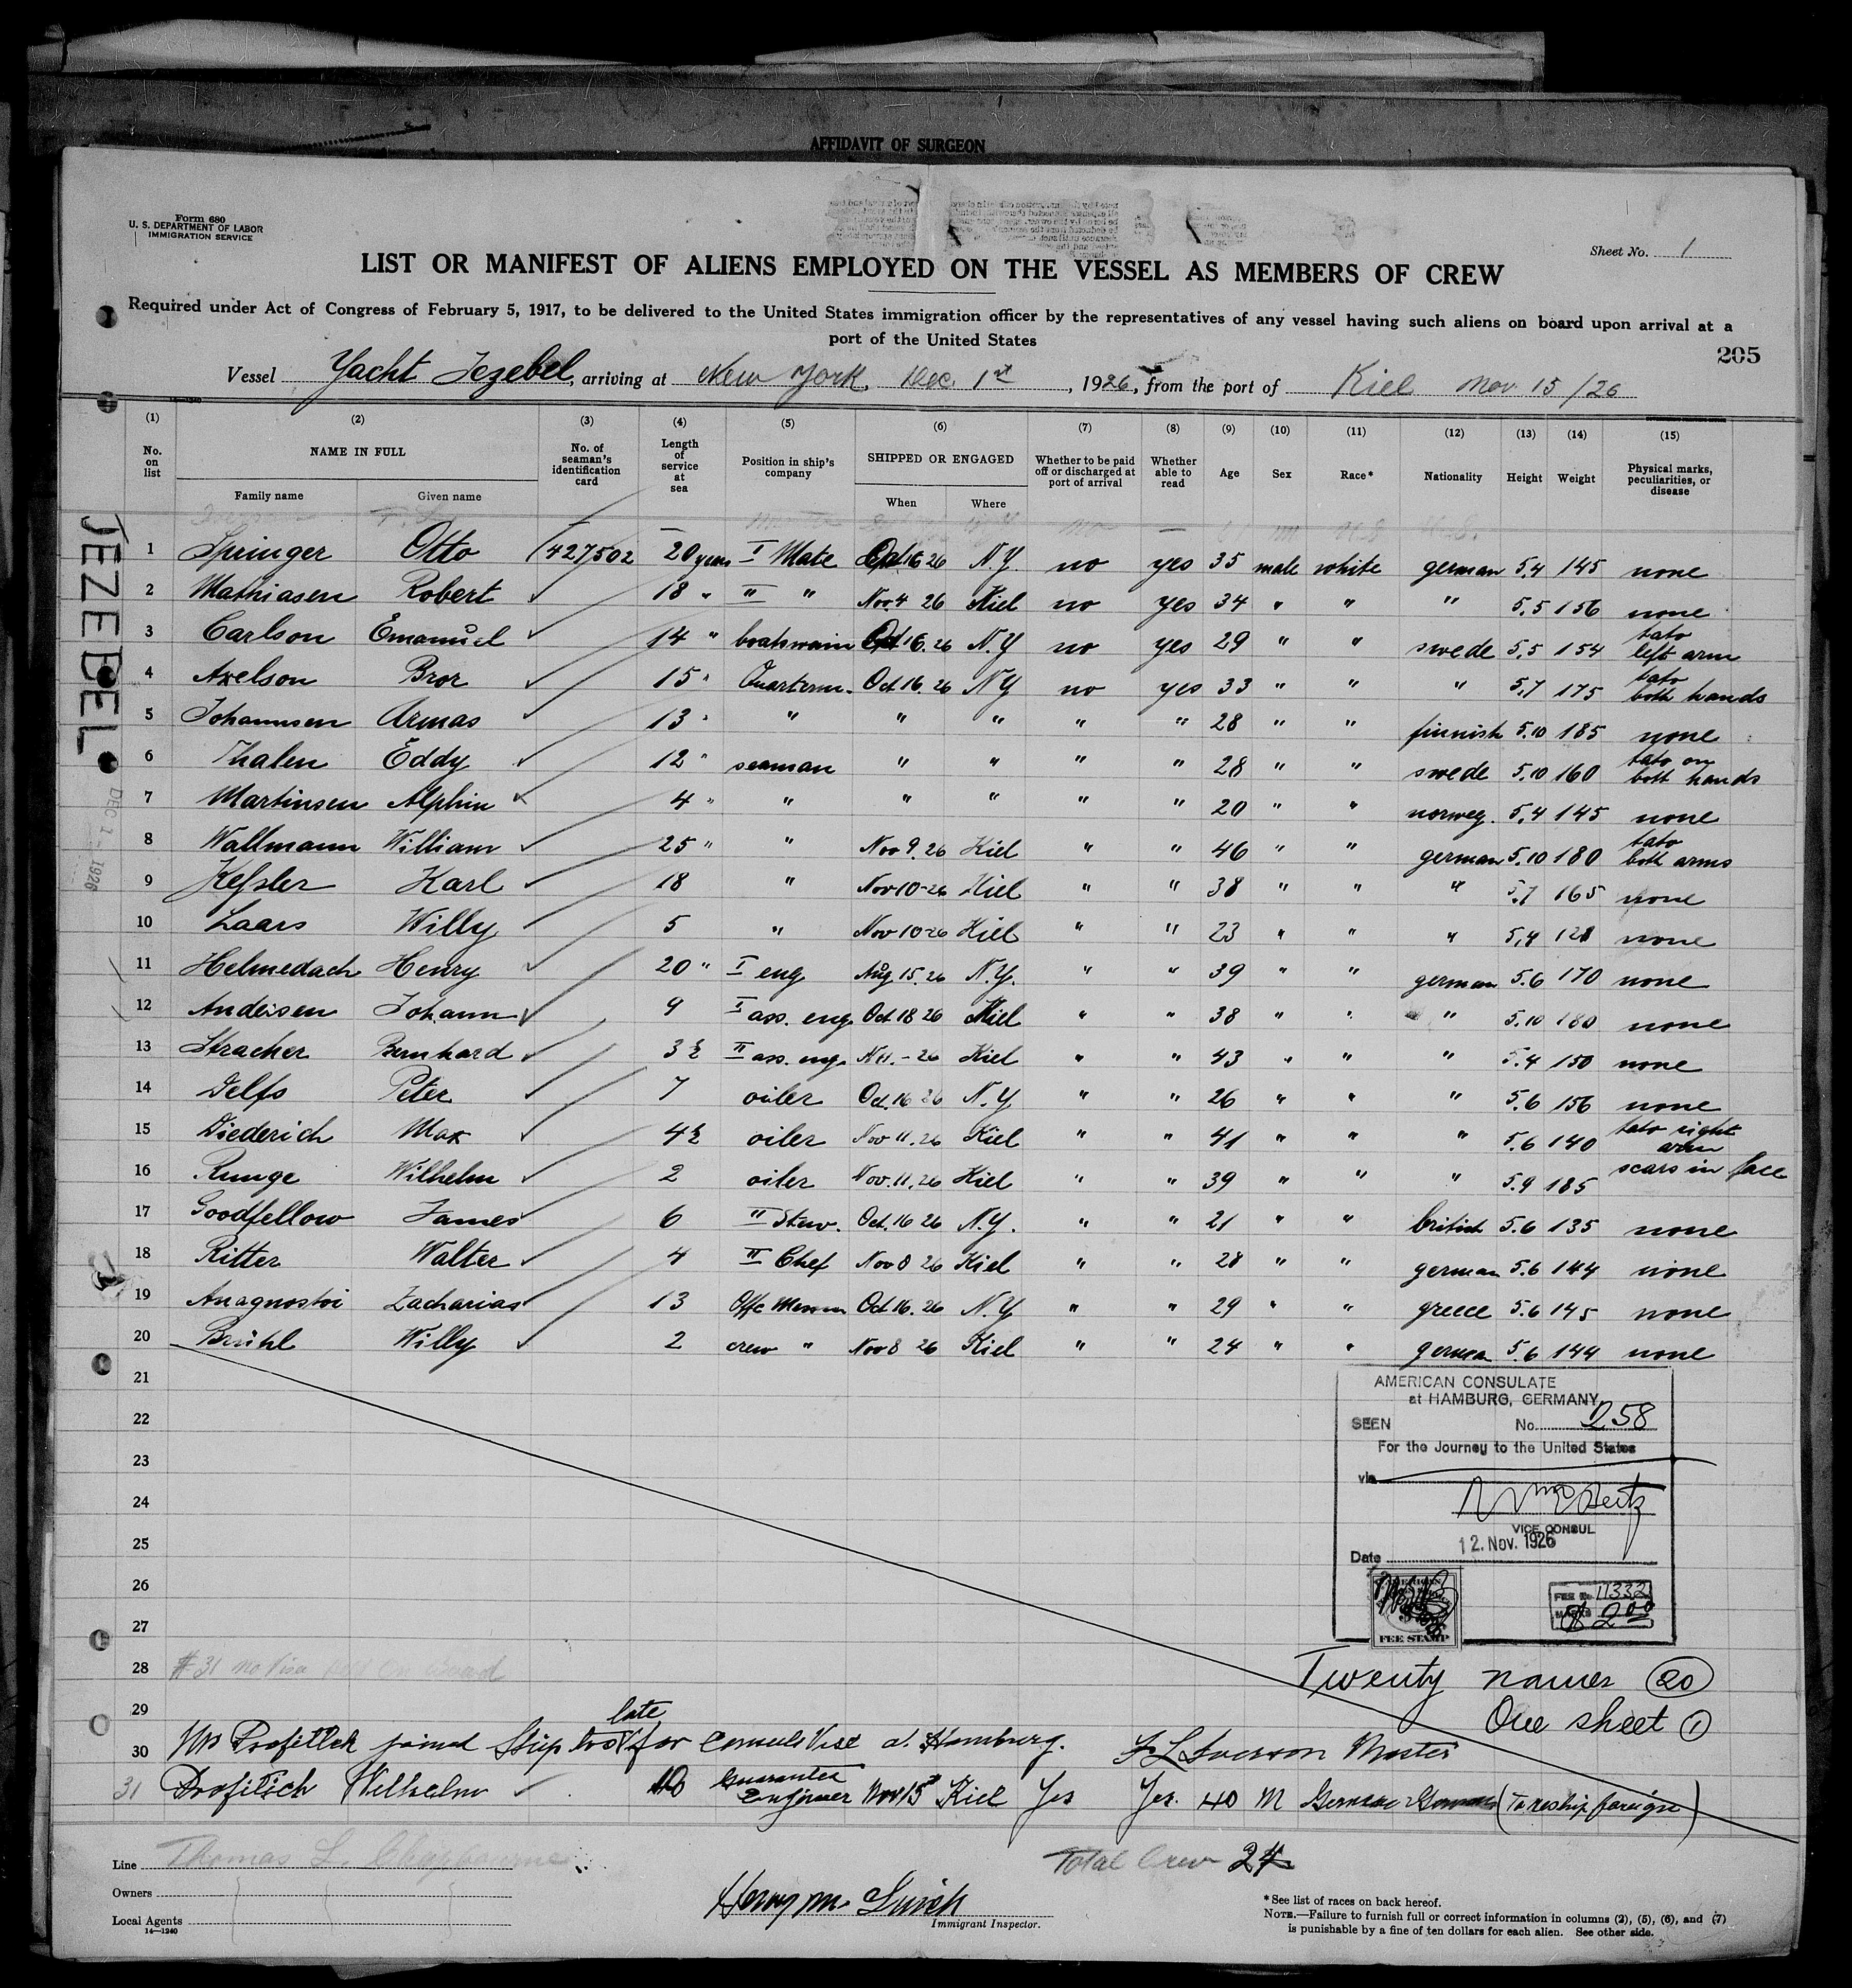 AFFIDAVIT OF SURGEON
Form 680
U. S. DEPARTMENT OF LABOR
IMMIGRATION SERVICE
Sheet No. 1
LIST OR MANIFEST OF ALIENS EMPLOYED ON THE VESSEL AS MEMBERS OF CREW
Required under Act of Congress of February 5, 1917, to be delivered to the United States immigration officer by the representatives of any vessel having such aliens on board upon arrival at a
port of the United States
205
Vessel Yacht Jezebel, arriving at New York, Dec. 1st, 1926, from the port of Kiel Nov. 15/26
(1) (2) (3) (4) (5) (6) (7) (8) (9) (10) (11) (12) (13) (14) (15)
No. on list NAME IN FULL Family name Given name No. of seaman's identification card Length of service at sea Position in ship's company SHIPPED OR ENGAGED When Where Whether to be paid off or discharged at port of arrival Whether able to read Age Sex Race* Nationality Height Weight Physical marks, peculiarities, or disease
JEZEBEL
DEC 1 - 1926
1 Springer Otto 427502 20 years I Mate Oct 16 26 N.Y. no yes 35 male white german 5,4 145 none
2 Mathiasen Robert 18 " II " Nov. 4 26 Kiel no yes 34 " " " 5,5 156 none
3 Carlson Emanuel 14 " boatswain Oct 16. 26 N.Y no yes 29 " " swede 5,5 154 tato left arm
4 Axelson Bror 15 " Quarterm. Oct 16. 26 N.Y no yes 33 " " " 5,7 175 tato both hands
5 Johannsen Armas 13 " " " " " " 28 " " finnish 5.10 185 none
6 Thalen Eddy 12 " seaman " " " " 28 " " swede 5,10 160 tato on both hands
7 Martinsen Alphin 4 " " " " " " 20 " " norweg. 5,4 145 none
8 Wallmann William 25 " " Nov 9. 26 Kiel " " 46 " " german 5.10 180 tato both arms
9 Keſsler Karl 18 " Nov 10-26 Kiel " " 38 " " " 5.7 165 none
10 Laars Willy 5 " Nov 10-26 Kiel " " 23 " " " 5,4 128 none
11 Helmedach Henry 20 " I eng Aug 15. 26 N.Y. " " 39 " " german 5.6 170 none
12 Andersen Johann 9 I ass. eng. Oct 18 26 Kiel " " 38 " " " 5.10 180 none
13 Stracher Bernhard 3½ II ass. eng. N 11. - 26 Kiel " " 43 " " " 5.4 150 none
14 Delfs Peter 7 oiler Oct. 16 26 N.Y " " 26 " " " 5.6 156 none
15 Diederich Max 4½ oiler Nov 11. 26 Kiel " " 41 " " " 5.6 140 tato right arm
16 Runge Wilhelm 2 oiler Nov. 11. 26 Kiel " " 39 " " " 5.9 185 scars in face
17 Goodfellow James 6 II Stew. Oct. 16 26 N.Y. " " 21 " " british 5.6 135 none
18 Ritter Walter 4 II Chef Nov 8 26 Kiel " " 28 " " german 5.6 144 none
19 Anagnostoi Zacharias 13 Offc Messm Oct 16. 26 N.Y " " 29 " " greece 5.6 145 none
20 Brühl Willy 2 crew " Nov 8 26 Kiel " " 24 " " german 5.6 144 none
21
22
23
24
25
26
27
AMERICAN CONSULATE
at HAMBURG, GERMANY
SEEN No. 258
For the Journey to the United States
via
VICE CONSUL
Date 12. Nov. 1926
FEE STAMP
FEE No. 11332
2.00
28 #31 no Visa on board
Twenty names (20)
29 One sheet (1)
30 Mr Profitlich joined Ship too late for Consuls Visé at Hamburg. Master
31 Profitlich Wilhelm 10 Guarantee Engineer Nov 15th Kiel Yes Yes. 40 M German German (To reship foreign)
Line Thomas L. Chadbourne
Total Crew 24
Owners
Local Agents
14—1240
Immigrant Inspector.
*See list of races on back hereof.
NOTE.—Failure to furnish full or correct information in columns (2), (5), (6), and (7)
is punishable by a fine of ten dollars for each alien. See other side.